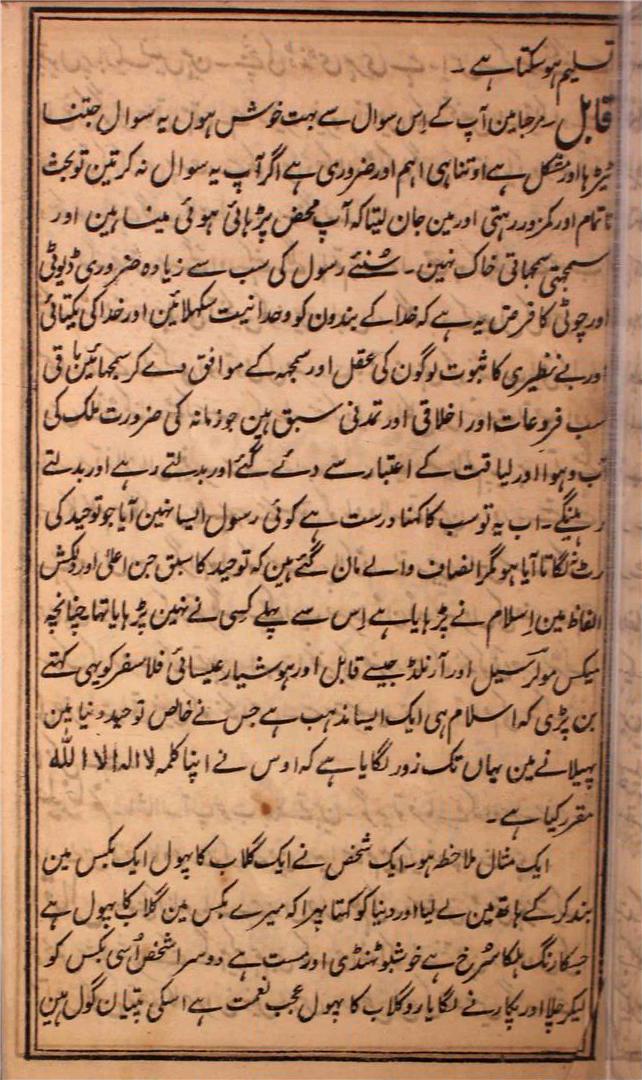 تسلیم ہوسکتا ہے ۔
قابل رمرجا مین آپ کے اِس سوال سے بہت خوش ہوں یہ سوال جتنا
ٹیڑہا اور مشکل ہے اوتنا ہی اہم اور ضروری ہے اگر آپ یہ سوال نہ کرتین تو بحث
ناتمام اور کمزور رہتی اور مین جان لیتا کہ آپ محض پڑہائی ہوئی مینا ہین اور
سمجہتی سمجہاتی خاک نہین ۔ سُنئے رسول کی سب سے زیادہ ضروری ڈیوٹی
اور چوٹی کا فرض یہ ہے کہ خدا کے بندون کو وحدانیت سکہلائین اور خدا کی یکتائی
اور بے نظیری کا ثبوت لوگون کی عقل اور سمجہہ کے موافق دے کر سمجہائین باقی
سب فروعات اور اخلاقی اور تمدنی سبق ہین جو زمانہ کی ضرورت ملک کی
آب وہوا اور لیاقت کے اعتبار سے دئے گئے اور بدلتے رہے اور بدلتے
رہینگے ۔ اب یہ تو سب کا کہنا درست ہے کوئی رسول ایسا نہین آیا جو توحید کی
رٹ نہ لگاتا آیا ہو مگر انصاف والے مان گئے ہین کہ توحید کا سبق جن اعلیٰ اور دلکش
الفاظ مین اِسلام نے پڑہایا ہے اِس سے پہلے کسِی نے نہین پڑہایا تہا چنانچہ
میکس مولر سیل اور آرنلڈ جیسے قابل اور ہوشیار عیسائی فلاسفر کو یہی کہتے
بن پڑی کہ اسلام ہی ایک ایسا مذہب ہے جس نے خالص توحید دنیا مین
پہیلانے مین یہاں تک زور لگایا ہے کہ اوس نے اپنا کلمہ لا الہ الا اللہ
مقرر کیا ہے ۔
ایک مثال ملاخطہ ہو۔ ایک شخص نے ایک گلاب کا پہول ایک بکس مین
بند کر کے ہاتھ مین لے لیا اور دنیا کو کہتا پہرا کہ میرے بکس مین گلاب کا پہول ہے
جسکا رنگ ہلکا سُرخ ہے خوشبو ٹہنڈی اور مست ہے دوسرا شخص اُسی بکس کو
لیکر چلا اور پکارنے لگا یارو گلاب کا پہول عجب نعمت ہے اسکی پتیان گول ہین